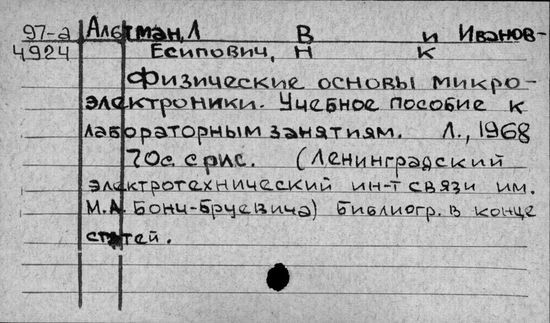 97-а Альтман, Л В и Иванов-
4924 Есипович, Н К
Физические основы микро-
электроники. Учебное пособие к
лабораторным занятиям. Л., 1968
70с. с рис. (Ленинградский
электротехнический ин-т связи им.
М.А. Бонч-Бруевича) Библиогр. в конце
статей.